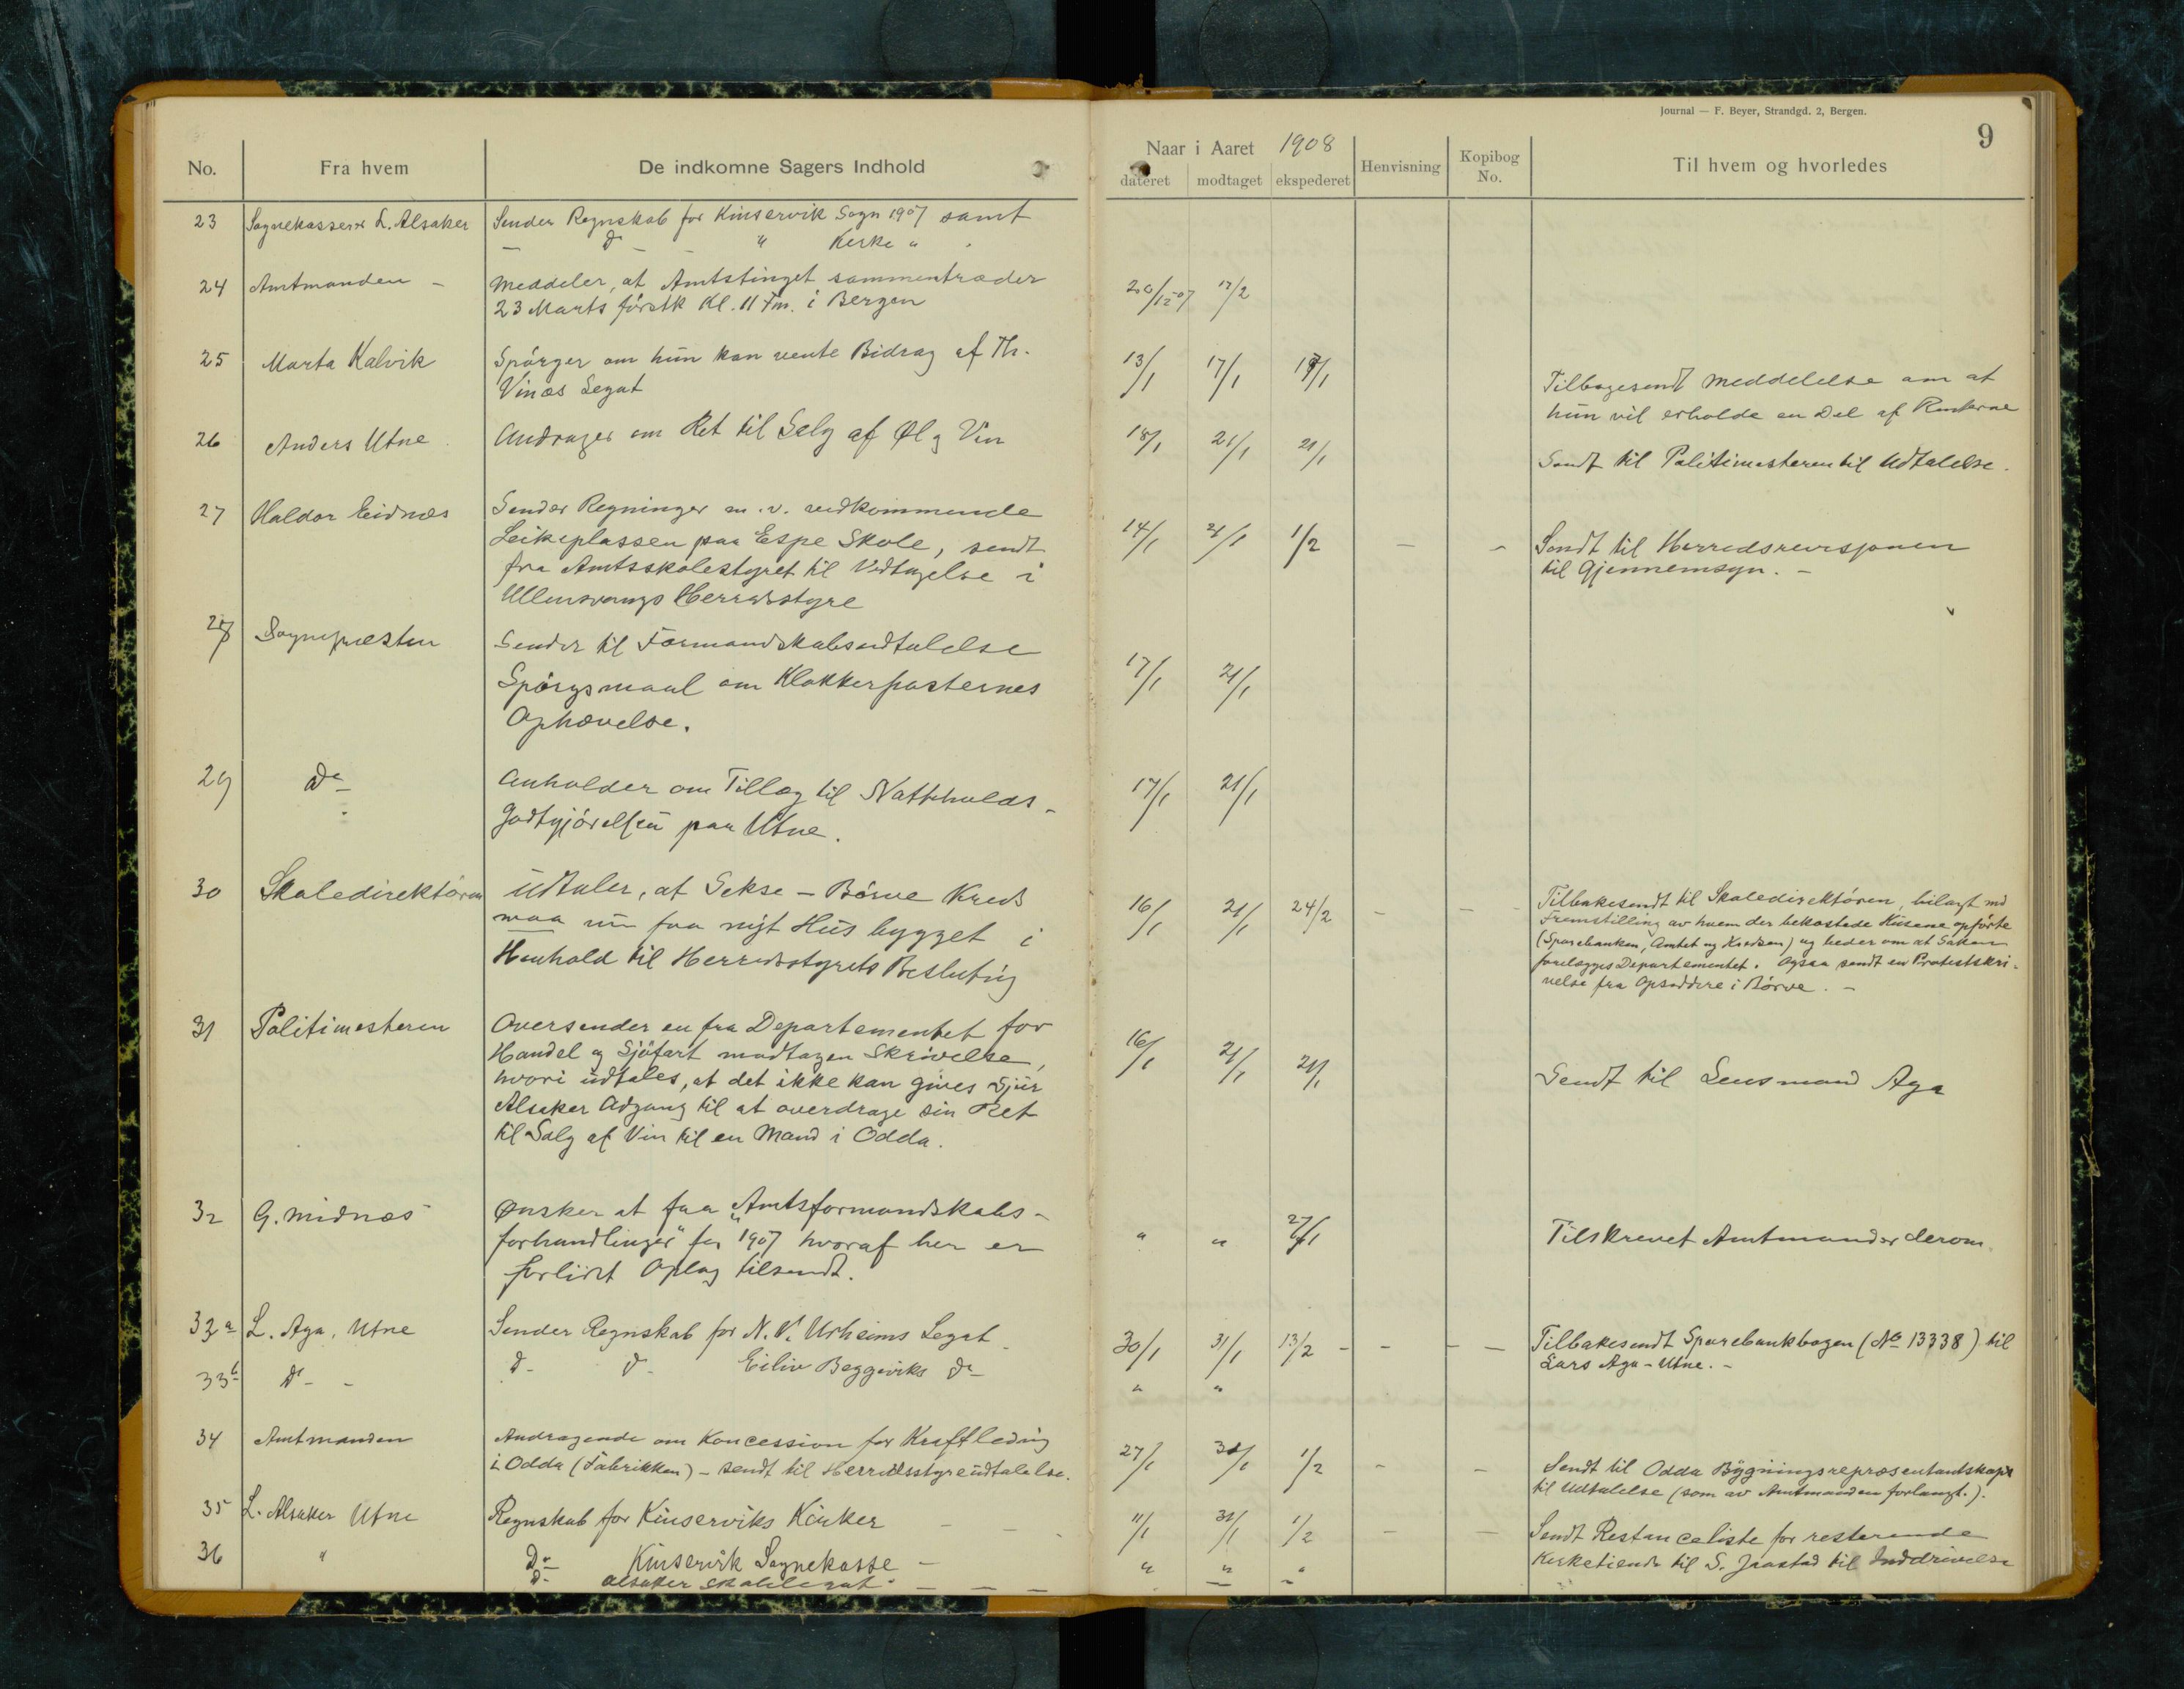 Journal — F. Beyer, Strandgd. 2, Bergen.
9
No. Fra hvem De indkomne Sagers Indhold Naar i Aaret 1908 Henvisning Kopibog No. Til hvem og hvorledes
dateret modtaget ekspederet
23 Sognekasserer L. Alsaker Sender Regnskab for Kinservik Sogn 1907 samt
— Do — — " Kirke "
24 Amtmanden – Meddeler, at Amtstinget sammentræder 20/12-07 17/2
23 Marts førstk Kl. 11 Fm. i Bergen
25 Marta Kalvik Spørger om hun kan vente Bidrag af Th. 13/1 17/1 17/1 Tilbagesendt meddelelse om at
Vinæs Legat hun vil erholde en Del af Renterne
26 Anders Utne Andrager om Ret til Salg af Øl og Vin 18/1 21/1 21/1 Sendt til Politimesteren til Udtalelse.
27 Haldor Eidnæs Sender Regninger m.v. vedkommende 14/1 21/1 1/2 – – Sendt til Herredsrevisjonen
Leikeplassen paa Espe Skole, sendt til Gjennemsyn. –
fra Amtsskolestyret til Vedtagelse i
Ullensvangs Herredsstyre
28 Sognepræsten Sender til Formandskabsudtalelse 17/1 21/1
Spørgsmaal om Klokkerposternes
Ophævelse.
29 Do Anholder om Tillæg til Nattholds- 17/1 21/1
godtgjørelsen paa Utne.
30 Skoledirektøren Udtaler, at Sekse – Børve Kreds 16/1 21/1 24/2 – – Tilbakesendt til Skoledirektøren, bilagt med
maa nu faa nyt Hus bygget i Fremstilling av hvem der bekostede Husene opførte
Henhold til Herredsstyrets Beslutning (Sparebanken, Amtet og Kredsen) og beder om at Saken
forelægges Departementet. Ogsaa sendt en Protestskri-
velse fra Opsiddere i Børve. –
31 Politimesteren Oversender en fra Departementet for 16/1 21/1 21/1 Sendt til Lensmand Aga
Handel og Sjøfart modtagen Skrivelse,
hvori udtales, at det ikke kan gives Sjur
Alsaker Adgang til at overdrage sin Ret
til Salg af Vin til en Mand i Odda.
32 G. Midnæs Ønsker at faa "Amtsformandskabs- " " 27/1 Tilskrevet Amtmanden derom.
forhandlinger" for 1907 hvoraf her er
forlidet Oplag tilsendt.
33a L. Aga, Utne Sender Regnskab for N. V. Urheims Legat 30/1 31/1 13/2 – – – – Tilbakesendt Sparebankbogen (No 13338) til
Lars Aga – Utne. –
33b Do – – Do Do Eiliv Beggeviks Do " "
34 Amtmanden Andragende om Koncession for Kraftledning 27/1 31/1 1/2 – – Sendt til Odda Bygningsrepræsentantskap
i Odda (Fabrikken) – sendt til Herredsstyreudtalelse. til Udtalelse (som av Amtmanden forlangt.).
35 L. Alsaker Utne Regnskab for Kinserviks Kirker – – 11/1 31/1 1/2 – – Sendt Restanceliste for resterende
36 " Do Kinservik Sognekasse – " " " Kirketiende til S. Jaastad til Inddrivelse
Do Alsaker skolelegat – – –